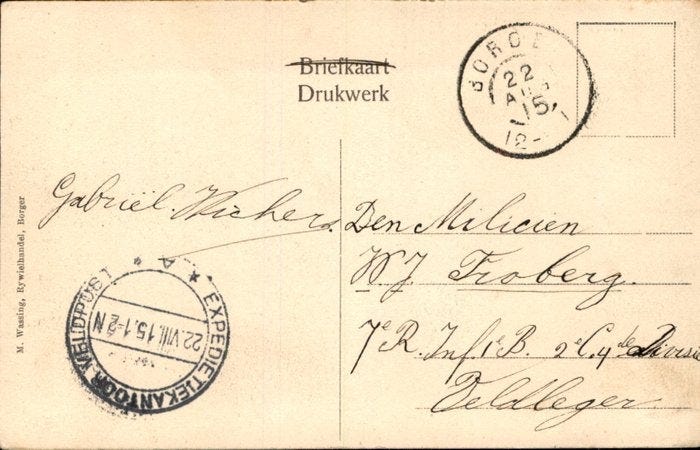 Briefkaart
Drukwerk
BORGE
22
AUG
15
12-
Gabriël Wichers.
Den Milicien
W J Froberg.
7e R. Inf. 1e B. 2e C. 4de Divisie
Veldleger
M. Wassing, Rywielhandel, Borger
EXPEDITIEKANTOOR VELDPOST
* A *
22.VIII.15.1-2 N